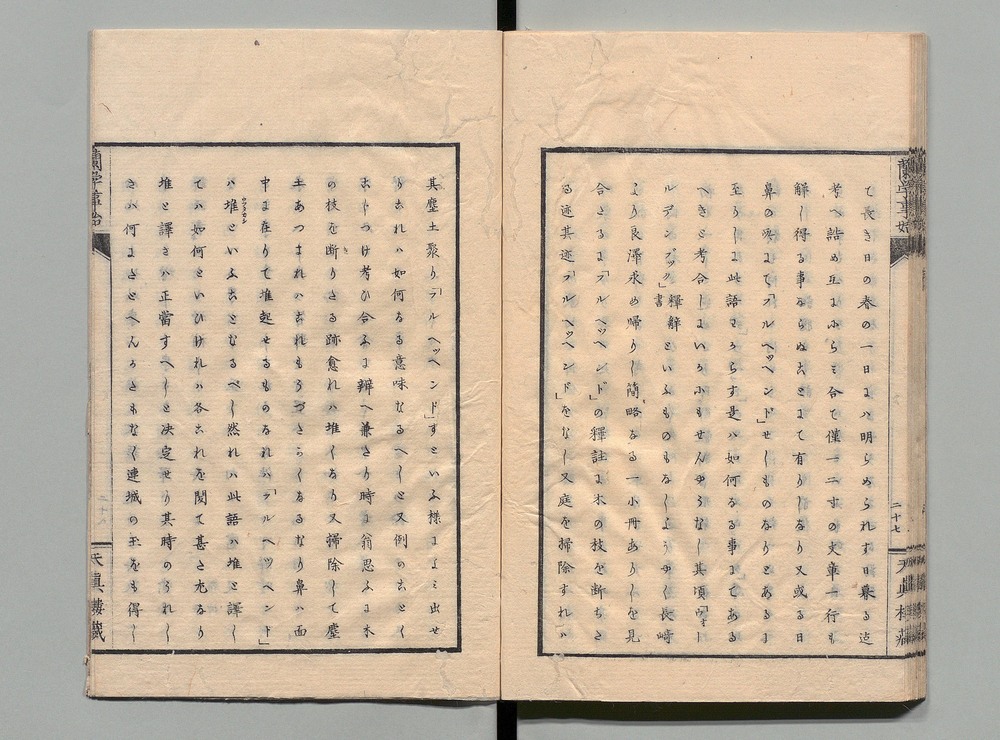 て長き日の春の一日よハ明らめられす日暮る迄
考へ詰め互よふらミ合て僅一二寸の文章一行も
解し得る事ならぬことまて有りしなり又或る日
鼻の處まて「フルヘッヘンド」せしものなりとあるよ
至りしよ此語わからす是ハ如何なる事まてある
へきと考合しよいかふもせんやうなし其頃「ウォールデンブック」釋辭書といふものもなしようやく長崎
より良澤求め帰りし簡略なる一小冊ありしを見
合とるよ「フルヘッヘンド」の釋註よ木の枝を断ちさ
る迹其迹「フルヘッヘンド」をなし又庭を掃除すれハ
二十七
天真楼蔵
蘭学事始
其塵土聚り「フルヘッヘンド」すといふ様よよミ出せ
りこれハ如何なる意味なるへしと又例のことく
こしつけ考ひ合ふよ辨へ兼さり時よ翁思ふよ木
の枝を断りさる跡愈れハ堆くなり又掃除して塵
土あつまれハこれもうづさかくなるなり鼻ハ面
中よ在りて堆起せるものなれハ「フルヘッヘンド」
ハ堆といふことなるべし然れハ此語ハ堆と譯し
てハ如何といひけれハ各これを聞て甚さ尤なり
堆と譯さハ正當すへしと决定せり其時のうれし
さハ何よさとへんかさもなく連城の玉をも得し
蘭学事始
二十八
天真樓藏